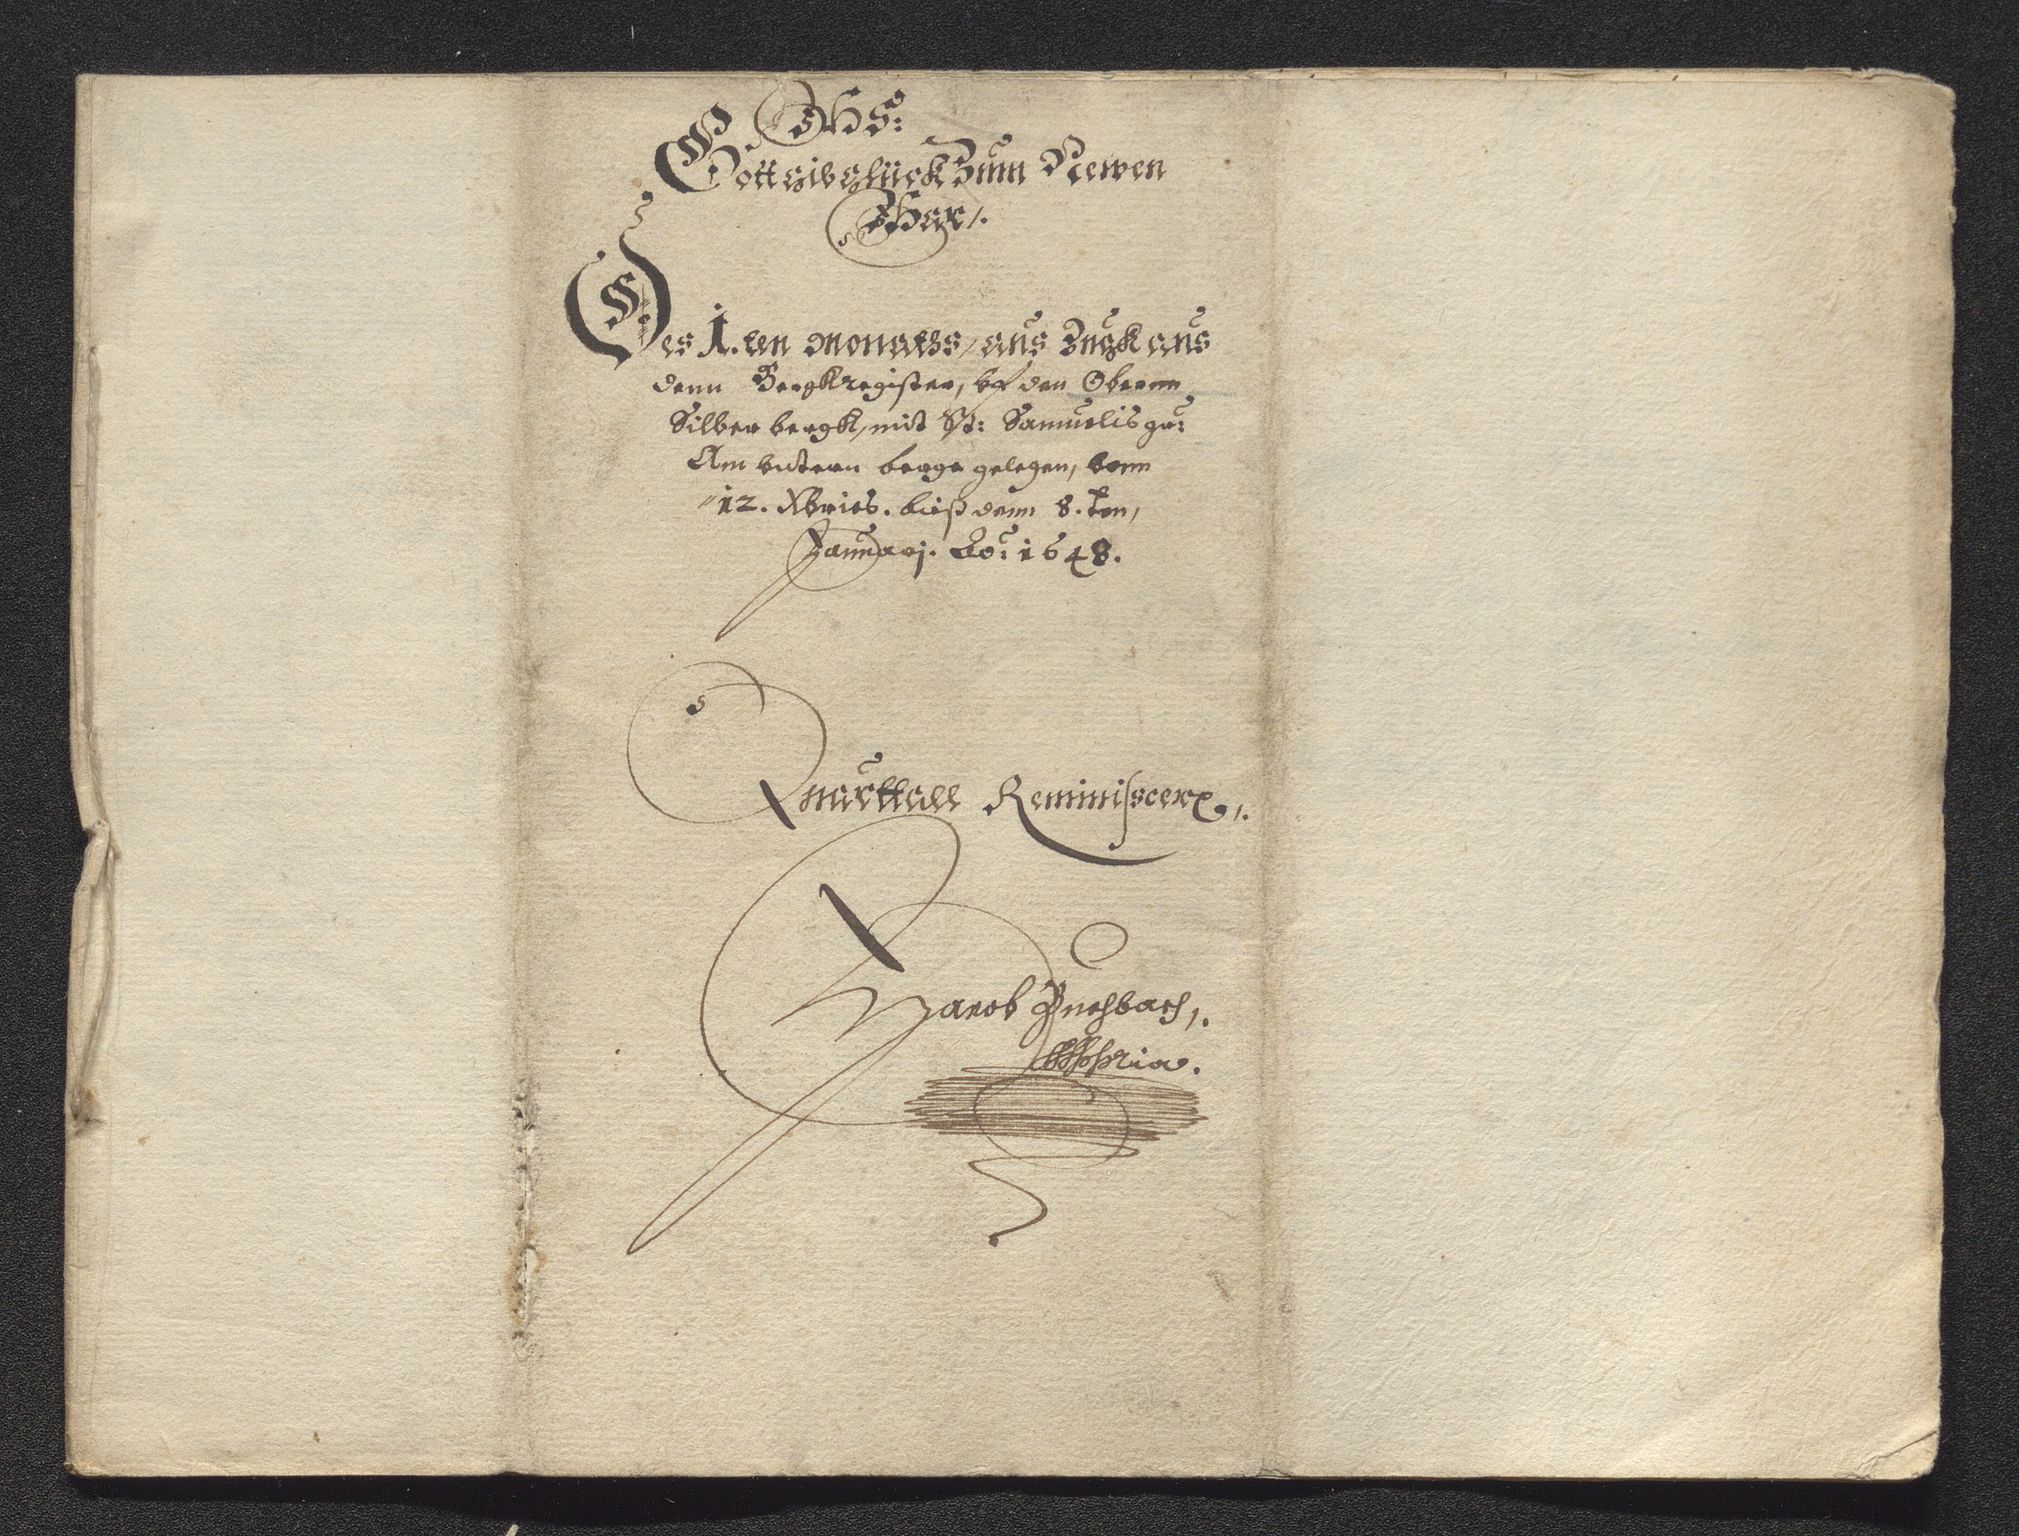 IHS:
Gott gib glück Zum Newen
Ihar /.
Des 1. ten Monaths / aus Zugk aus
denn Bergk register, vf den Obernn
Silber bergk, mit St: Samuelis gr:
Am vntern berge gelegen, vonn
12. Xbris. bieß denn 8. ten,
Januarj. Ao: 1648.
Quarttall Reminiscere /.
Jacob Buchbach /.